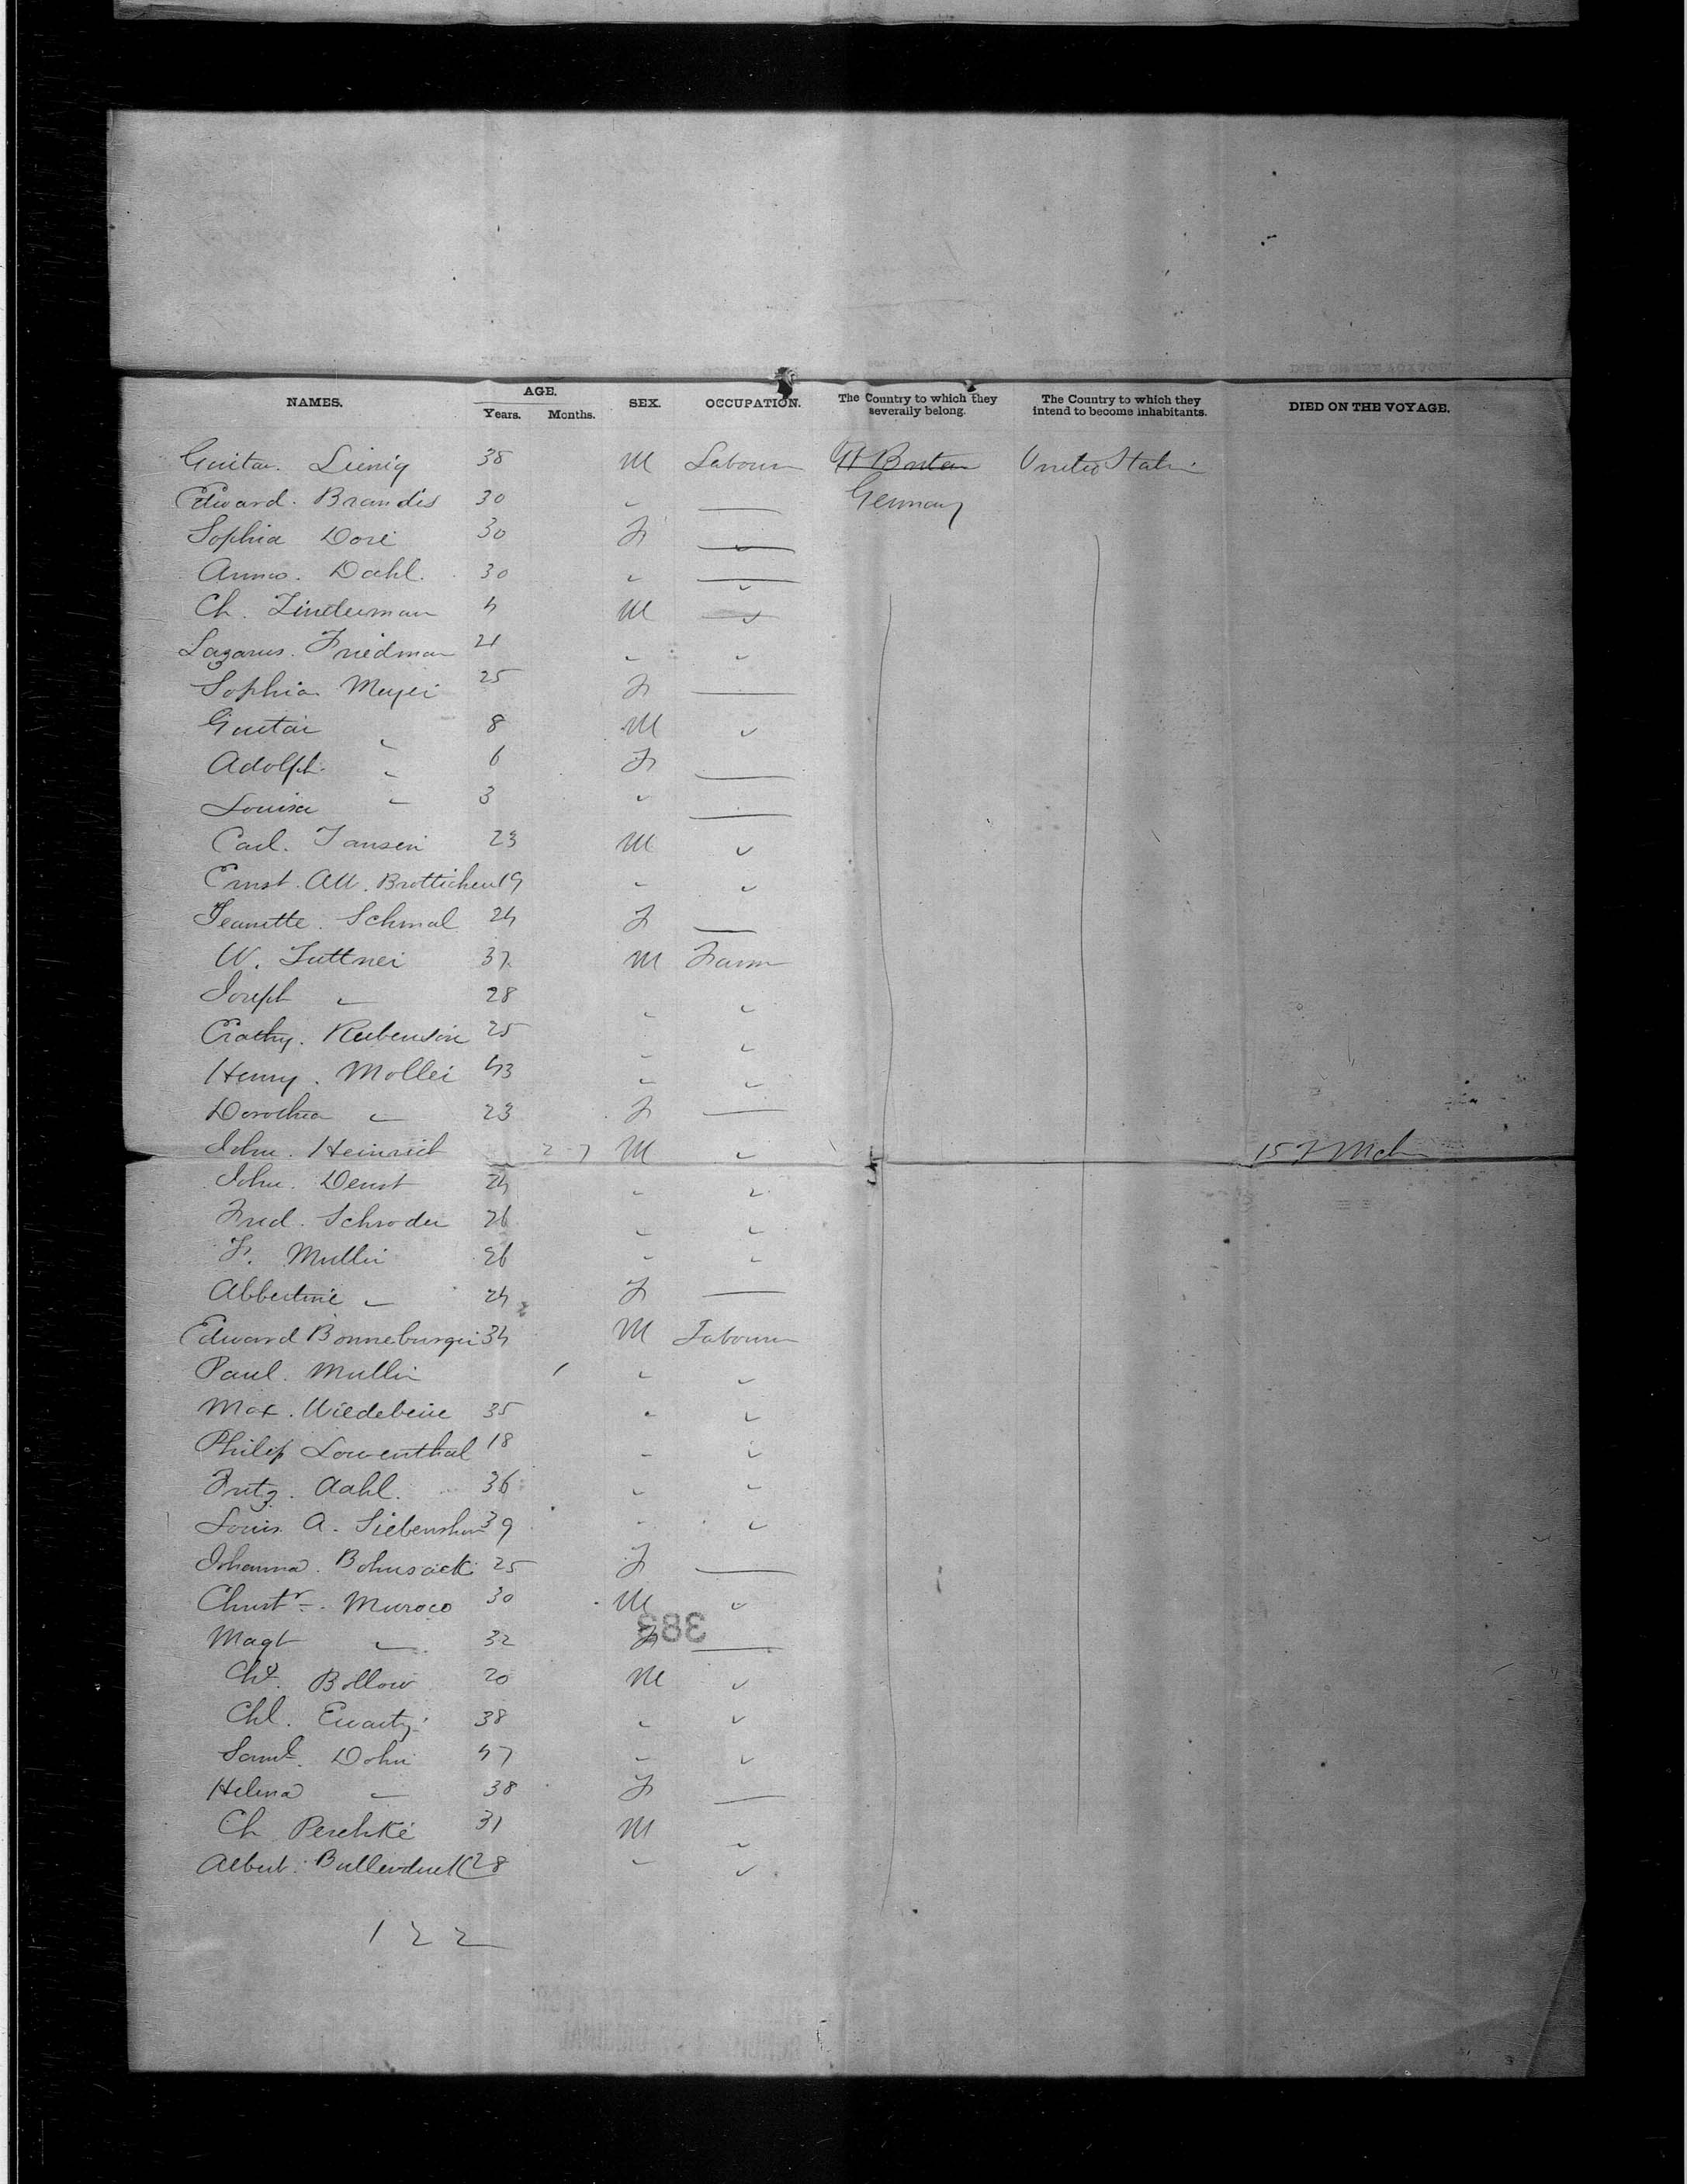 NAMES. AGE. SEX. OCCUPATION. The Country to which they severally belong. The Country to which they intend to become inhabitants. DIED ON THE VOYAGE.
Years. Months.
Gustav. Lienig 38 M Labourer Gt Britain United States
Edward. Brandis 30 " — Germany
Sophia Dore 30 F —
Anna. Dahl. 30 " —
Ch. Linderman 4 M "
Lazarus. Friedman 21 " "
Sophia Meyer 25 F —
Gustav " 8 M "
Adolph " 6 F —
Louisa " 3 " —
Carl. Jansen 23 M "
Ernst. 19 " "
Jeanette. Schmal 24 F —
W. Luttner 37 M Farmer
Joseph " 28 " "
Rubenson 25 " "
Henry. Moller 43 " "
Dorothea " 23 F —
John. Heinrich M " 15
John. Denst 24 " "
Fred. Schroder 26 " "
F. Muller 26 " "
Albertine " 24 F —
Edward Bonneburger 34 M Labourer
Paul. Muller 1 " "
Max. Wiedebeine 35 " "
Philip Lowenthal 18 " "
Fritz. Aahl. 36 " "
Louis. A. 39 " "
Johanna. Bohnsack 25 F —
Christr. Muroco 30 M "
383
Magt " 32 F —
Bollow 20 M "
Chl. 38 " "
Saml. Dohn 47 " "
Helena " 38 F —
Ch Perchke 31 M "
Albert. 28 " "
122